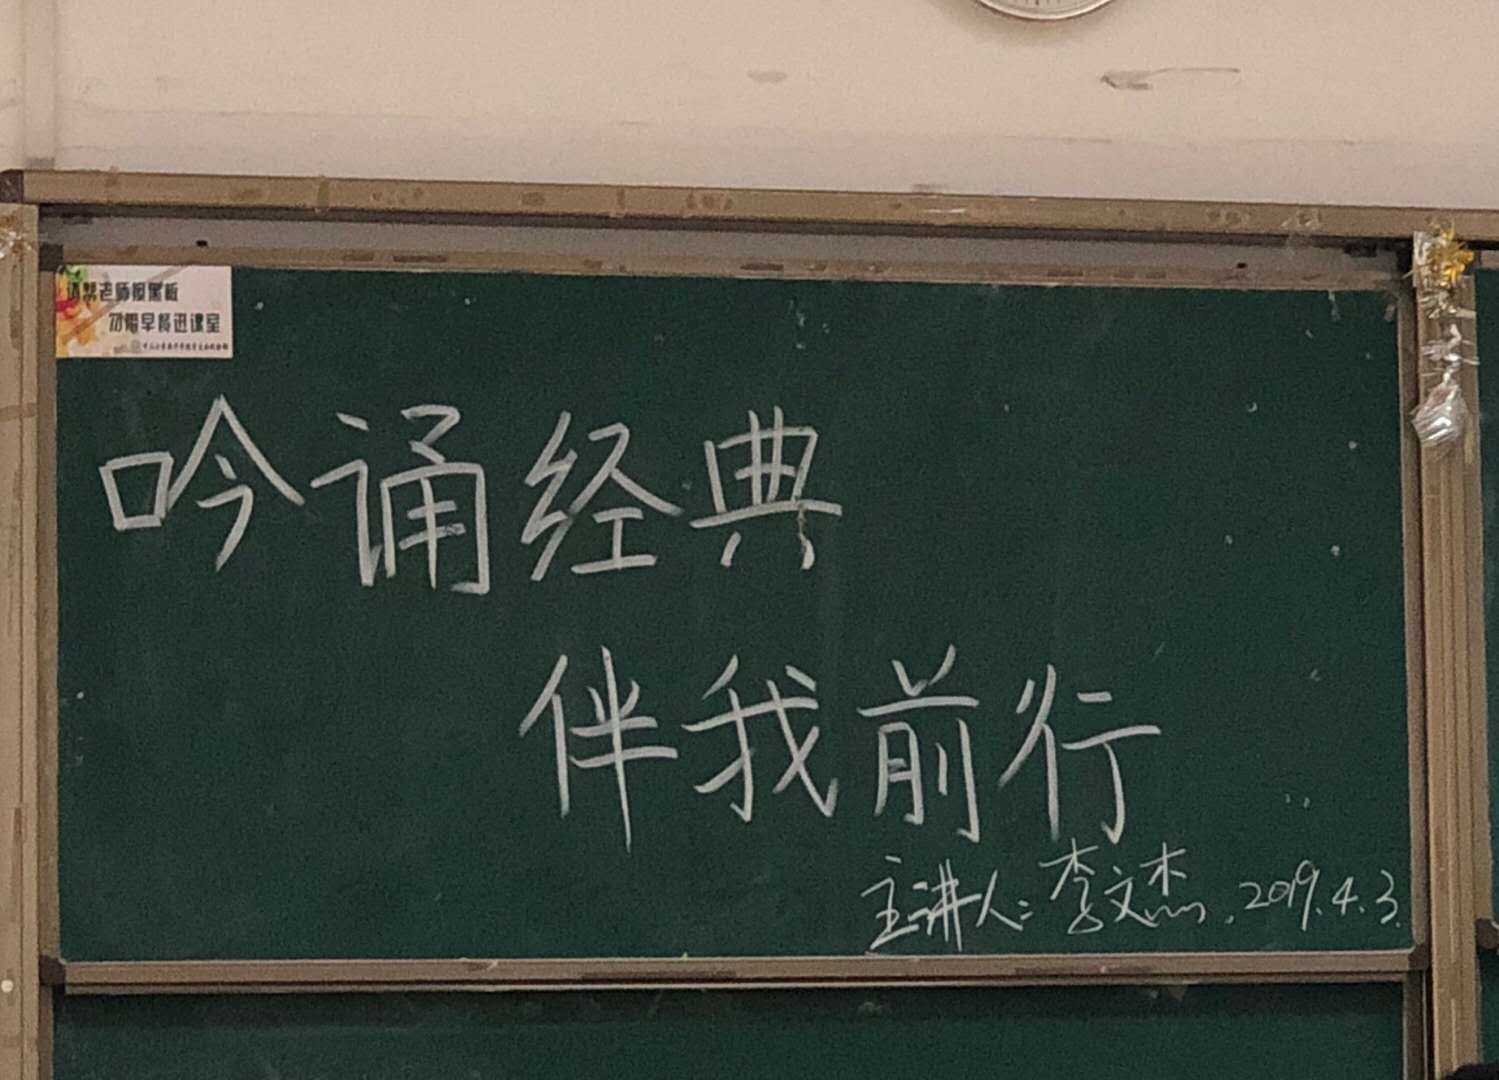 请帮老师擦黑板
勿带早餐进课室
吟诵经典
伴我前行
主讲人:李文杰.2019.4.3.